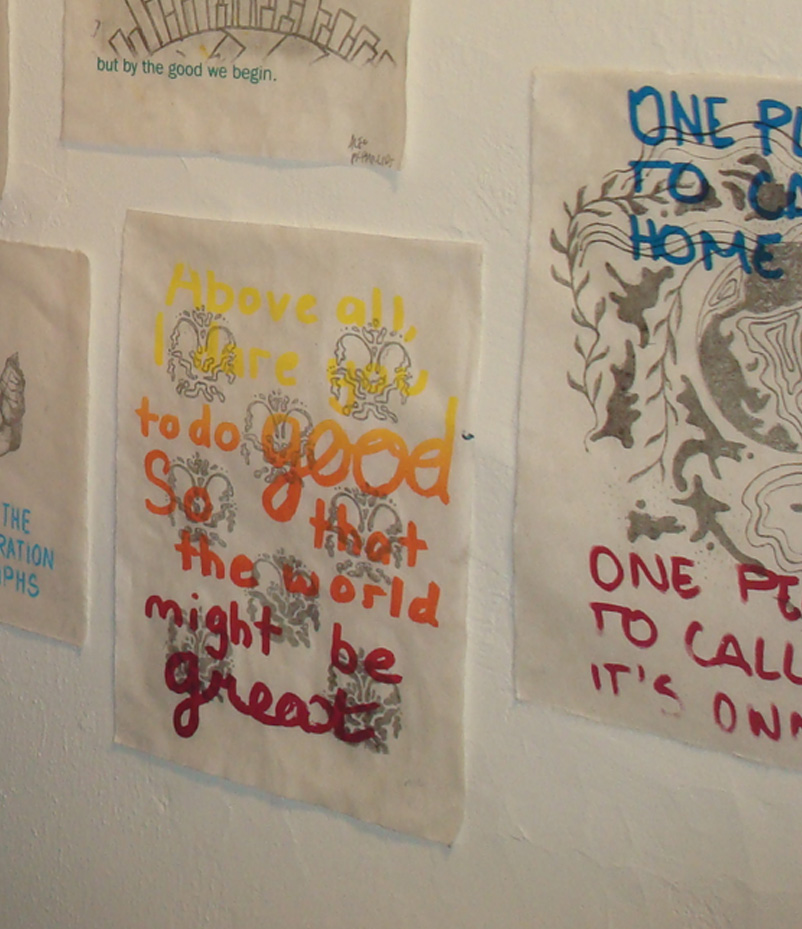 but by the good we begin.
ALEC
THE
RATION
PHS
Above all,
I dare you
to do good
So that
the world
might be
great
ONE P
TO CA
HOME
ONE PE
TO CALL
IT'S OWN